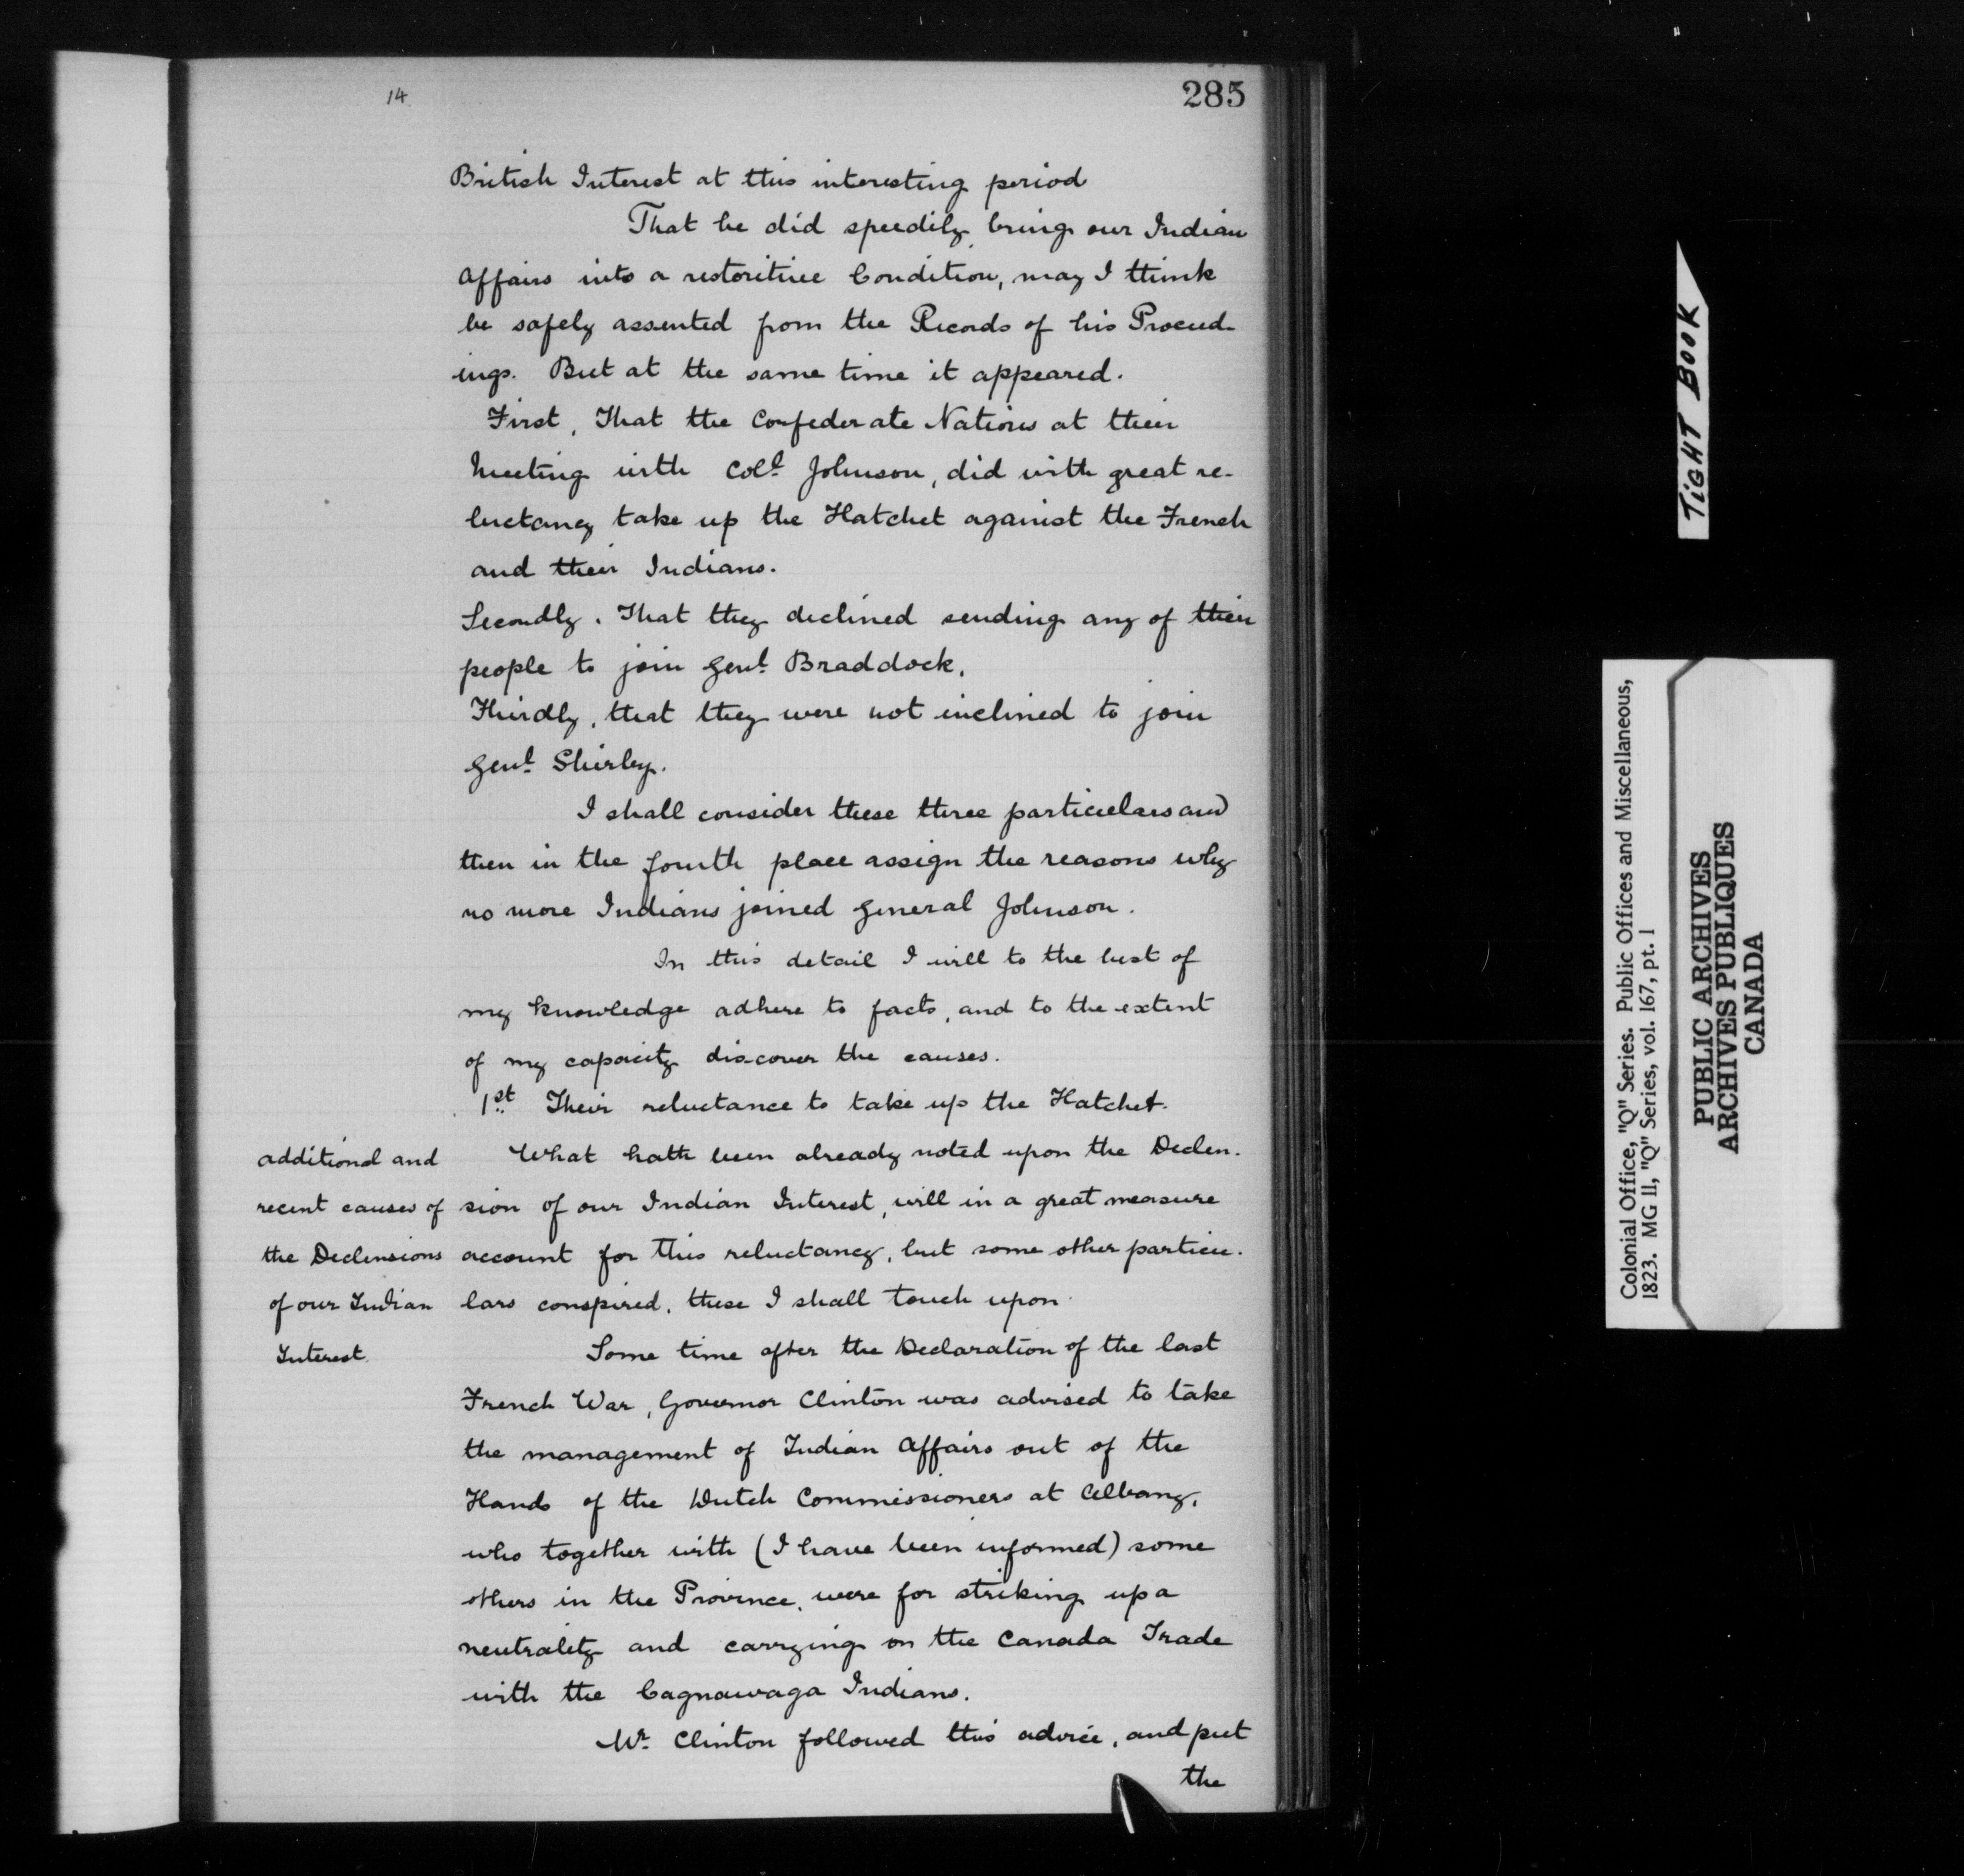 14
285
British Interest at this interesting period
That he did speedily bring our Indian
Affairs into a restoritive Condition, may I think
be safely assented from the Records of his Proceed-
ings. But at the same time it appeared.
First, That the Confederate Nations at their
Meeting with Coll. Johnson, did with great re-
luctancy take up the Hatchet against the French
and their Indians.
Secondly. That they declined sending any of their
people to join Genl. Braddock.
Thirdly, that they were not inclined to join
Genl. Shirley.
I shall consider these three particulars and
then in the fourth place assign the reasons why
no more Indians joined General Johnson.
In this detail I will to the best of
my knowledge adhere to facts, and to the extent
of my capacity discover the causes.
1st. Their reluctance to take up the Hatchet.
additional and
recent causes of
the Declensions
of our Indian
Interest.
What hath been already noted upon the Declen-
sion of our Indian Interest, will in a great measure
account for this reluctancy, but some other particu-
lars conspired, these I shall touch upon.
Some time after the Declaration of the last
French War, Governor Clinton was advised to take
the management of Indian Affairs out of the
Hands of the Dutch Commissioners at Albany,
who together with (I have been informed) some
others in the Province, were for striking up a
neutrality and carrying on the Canada Trade
with the Cagnawaga Indians.
Mr. Clinton followed this advice, and put
the
TIGHT BOOK
Colonial Office, "Q" Series. Public Offices and Miscellaneous,
1823. MG 11, "Q" Series, vol. 167, pt. 1
PUBLIC ARCHIVES
ARCHIVES PUBLIQUES
CANADA